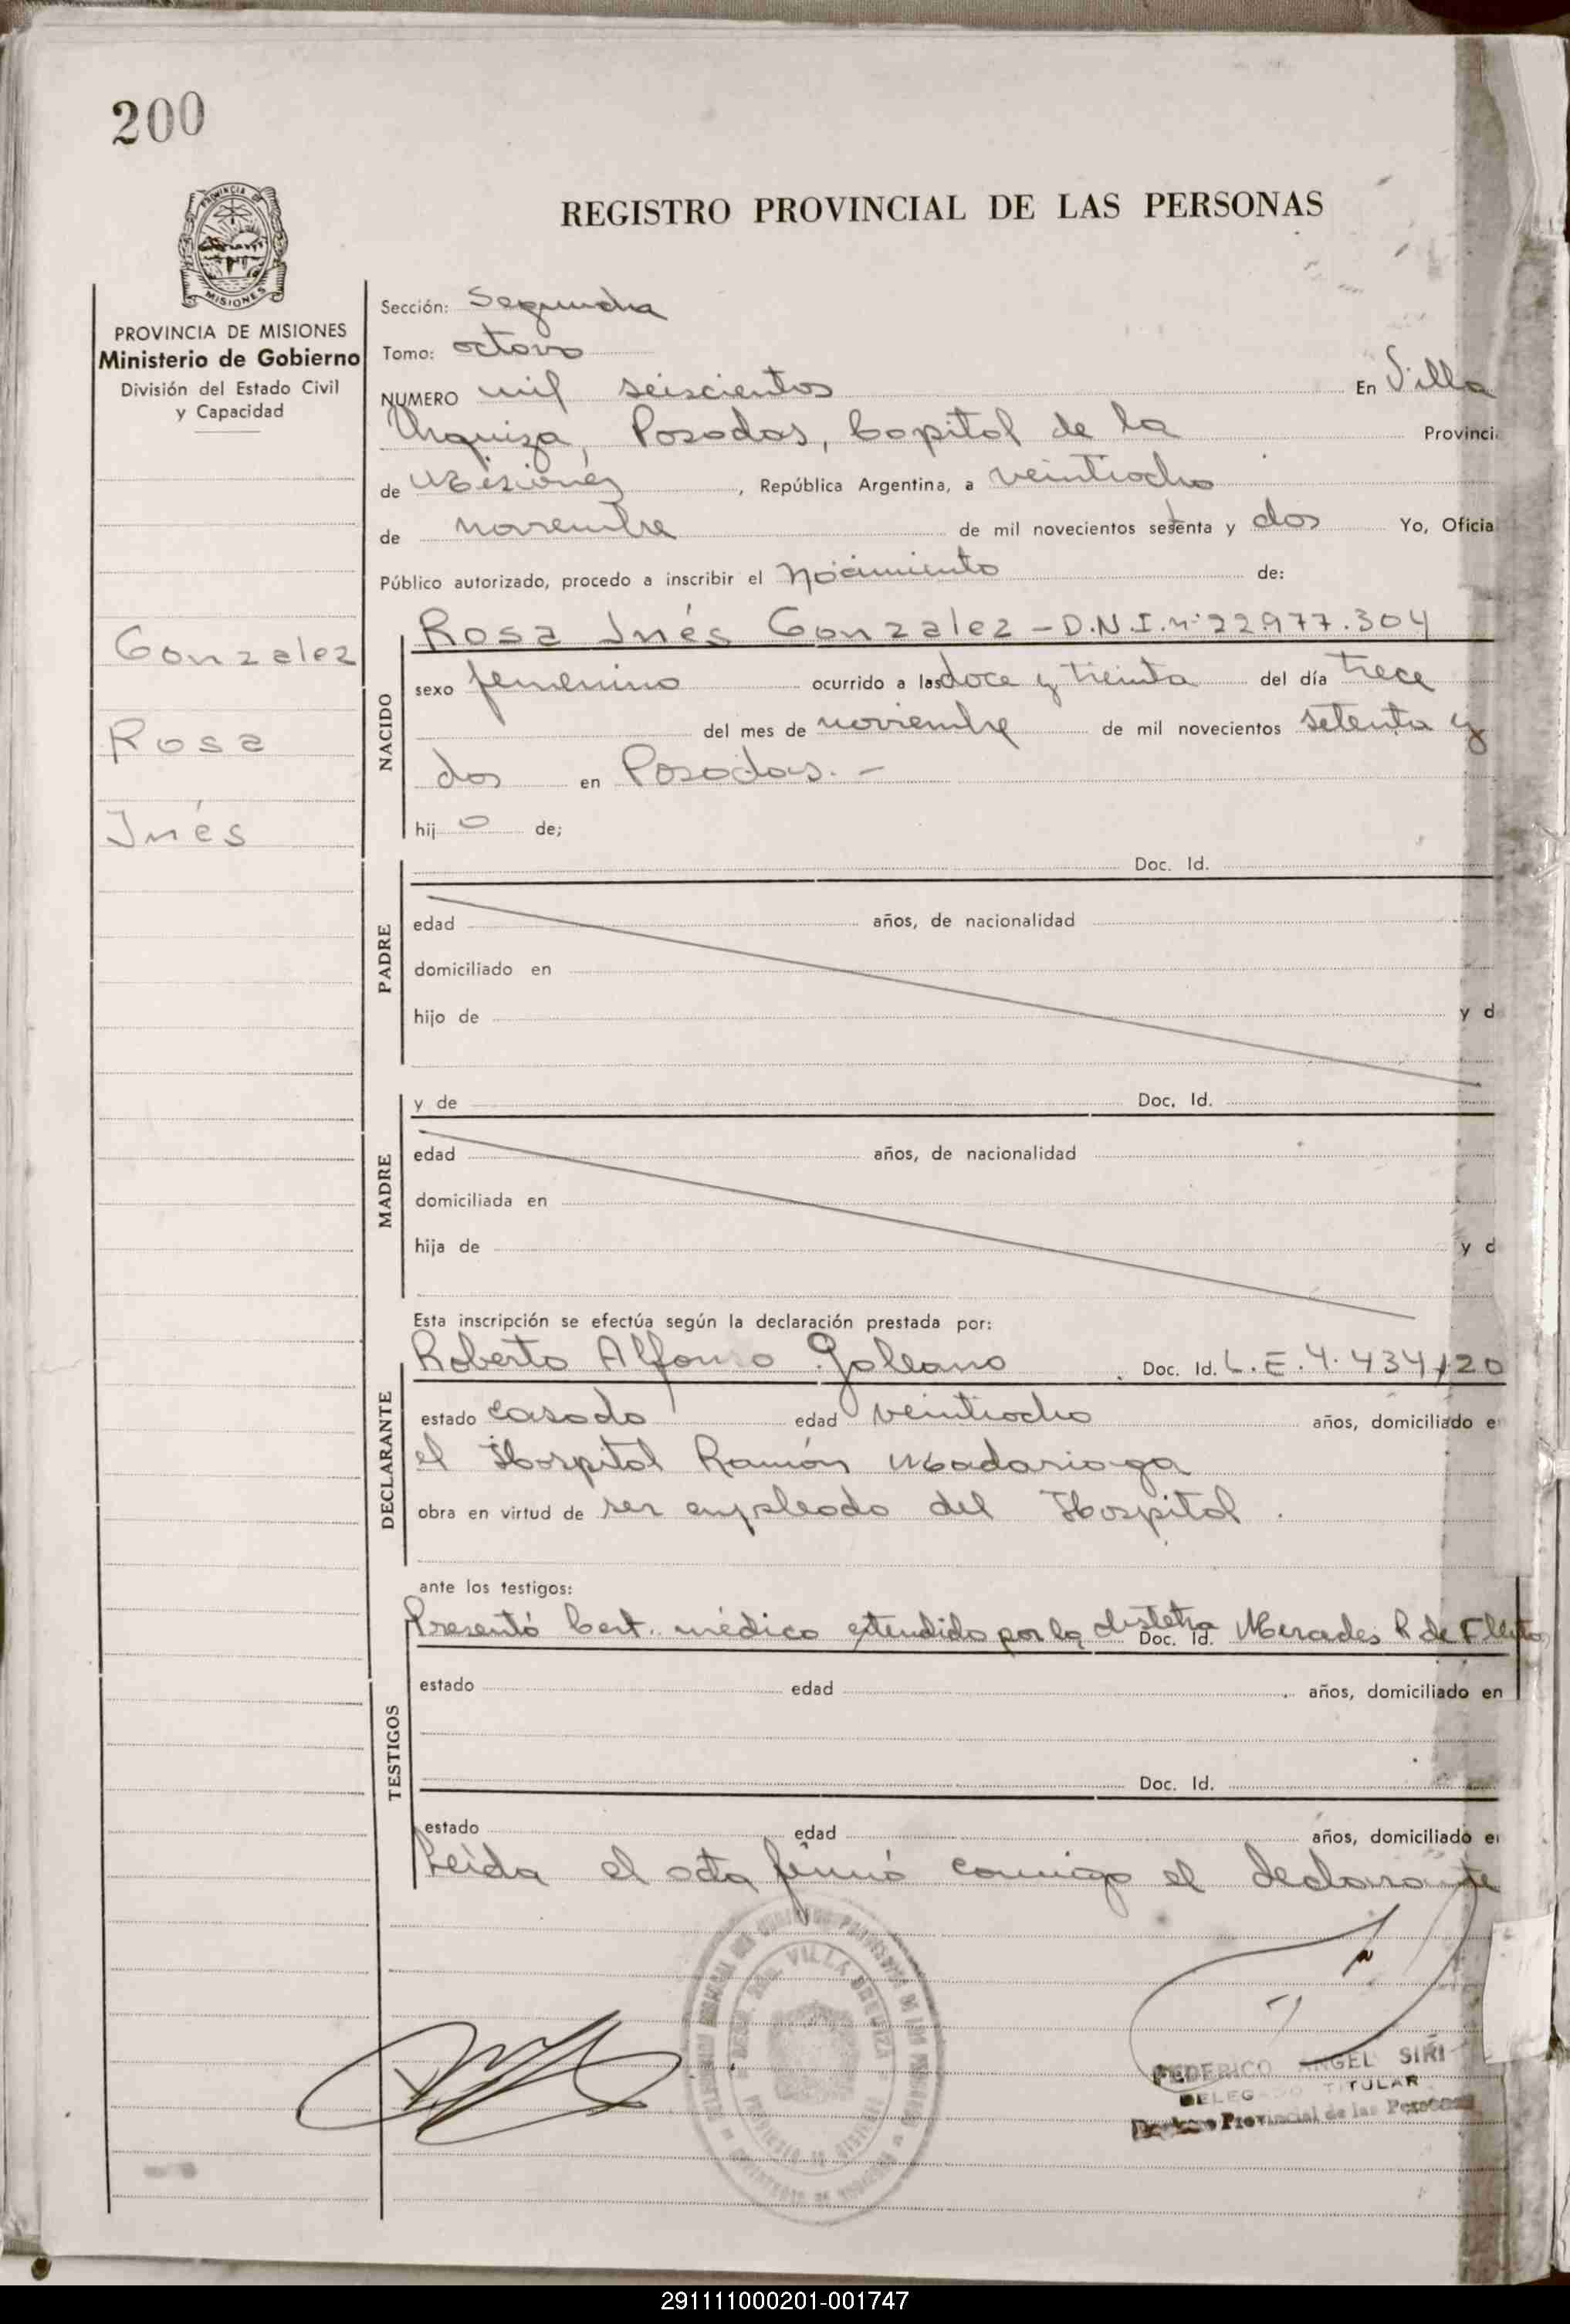 200
PROVINCIA DE
MISIONES
REGISTRO PROVINCIAL DE LAS PERSONAS
PROVINCIA DE MISIONES
Ministerio de Gobierno
División del Estado Civil
y Capacidad
Gonzalez
Rosa
Inés
Sección: Segunda
Tomo: octavo
NUMERO mil seiscientos En Villa
Urquiza, Posadas, Capital de la Provinci
de Misiones, República Argentina, a veintiocho
de noviembre de mil novecientos setenta y dos Yo, Oficia
Público autorizado, procedo a inscribir el Nacimiento de:
NACIDO
Rosa Inés Gonzalez - D.N.I. nº 22.977.304
sexo femenino ocurrido a las doce y treinta del día trece
del mes de noviembre de mil novecientos setenta y
dos en Posadas. -
hij o de;
PADRE
Doc. Id.
edad años, de nacionalidad
domiciliado en
hijo de y d
MADRE
y de Doc. Id.
edad años, de nacionalidad
domiciliada en
hija de y d
Esta inscripción se efectúa según la declaración prestada por:
DECLARANTE
Roberto Alfonso Galeano Doc. Id. L.E. 4.434.120
estado casado edad veintiocho años, domiciliado e
el Hospital Ramón Madariaga
obra en virtud de ser empleado del Hospital.
ante los testigos:
TESTIGOS
Presentó Cert. médico extendido por la obstetra Doc. Id. Mercedes R de
estado edad años, domiciliado en
Doc. Id.
estado edad años, domiciliado e
Leída el acta firmó conmigo el declarante
VILLA URQUIZA
FEDERICO ANGEL SIRI
DELEGADO TITULAR
Provincial de las Personas
291111000201-001747